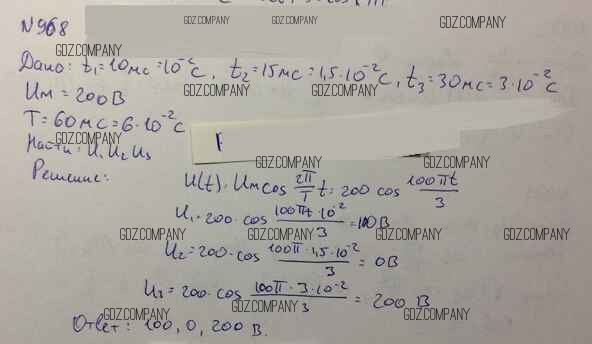 N 968
GDZ.COMPANY GDZ.COMPANY GDZ.COMPANY
GDZ.COMPANY
Дано: t₁=10мс=10⁻²С, t₂=15мс=1,5·10⁻²С, t₃=30мс=3·10⁻²С
GDZ.COMPANY GDZ.COMPANY GDZ.COMPANY
Uм=200В
T=60мс=6·10⁻²С
GDZ.COMPANY
Найти: U₁ U₂ U₃
GDZ.COMPANY GDZ.COMPANY
Решение: U(t)=Uм cos 2π/T t=200 cos 100πt/3
U₁=200·cos 100πt·10⁻²/3=100В
GDZ.COMPANY GDZ.COMPANY GDZ.COMPANY GDZ.COMPANY
U₂=200·cos 100π·1,5·10⁻²/3=0В
U₃=200·cos 100π·3·10⁻²/3=200 В
GDZ.COMPANY GDZ.COMPANY GDZ.COMPANY
Ответ: 100, 0, 200 В.
GDZ.COMPANY